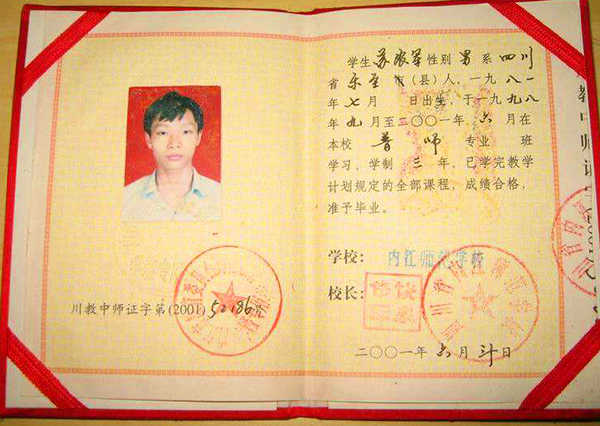 川教中师证字第(2001)52186号
学生苏农军性别男系四川
省乐至市(县)人,一九八一
年七月 日出生,于一九九八
年九月至二〇〇一年六月在
本校普师专业 班
学习,学制三年,已学完教学
计划规定的全部课程,成绩合格,
准予毕业。
学校:内江师范学校
校长:
二〇〇一年六月 日